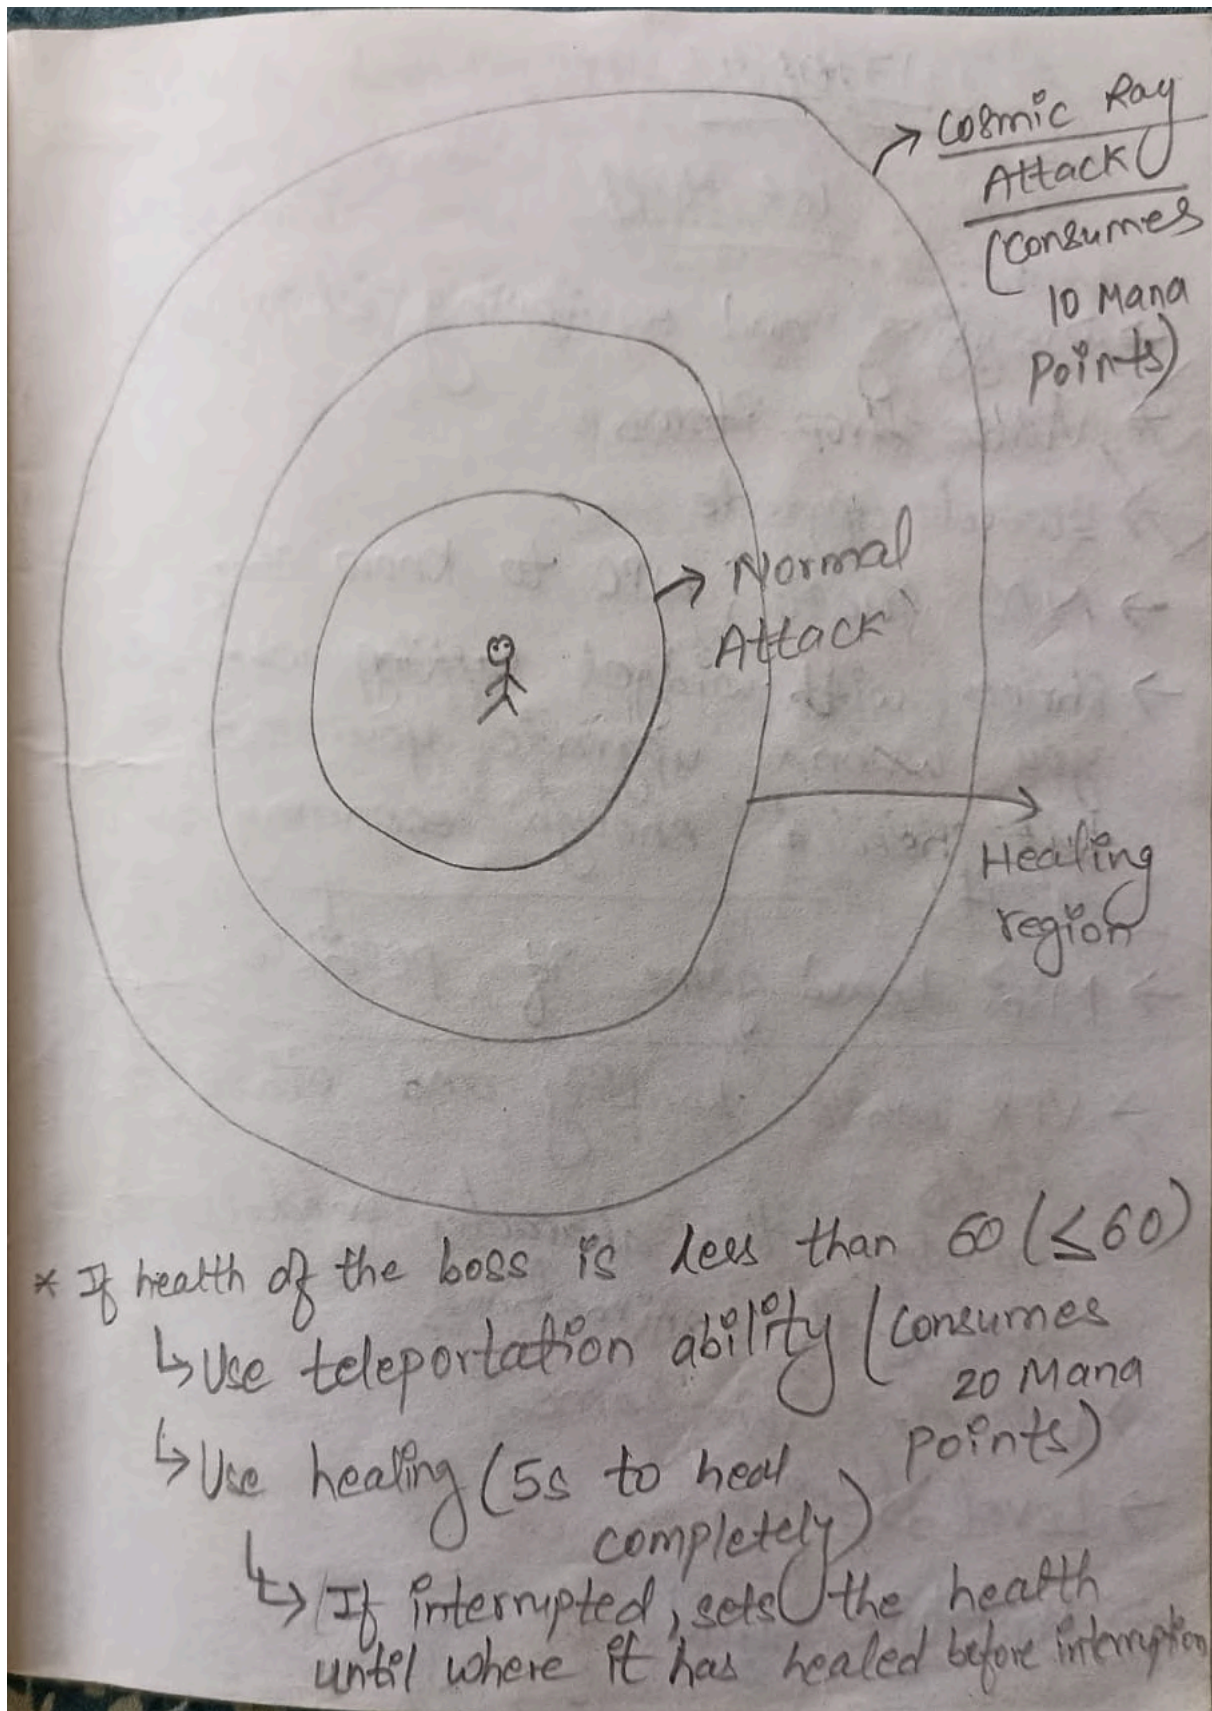 Cosmic Ray
Attack
(Consumes
10 Mana
Points)
Normal
Attack
Healing
region
* If health of the boss is less than 60 (≤60)
↳ Use teleportation ability (Consumes
20 Mana
Points)
↳ Use healing (5s to heal
completely)
↳ If interrupted, sets the health
until where it has healed before interruption